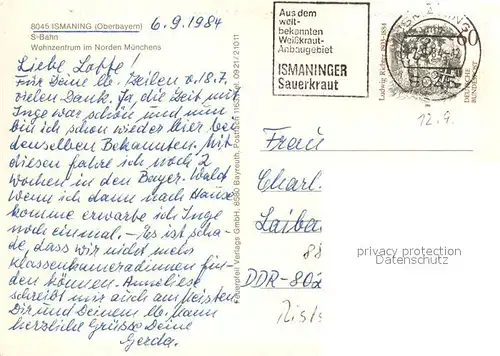 8045 ISMANING (Oberbayern)
6.9.1984
S-Bahn
Wohnzentrum im Norden Münchens
Liebe Lotte!
Für Deine lb. Zeilen v. 18.7.
vielen Dank. Ja, die Zeit mit
Inge war schön und nun
bin ich schon wieder hier bei
denselben Bekannten. Mit
diesen fahre ich noch 2
Wochen in den Bayer. Wald.
Wenn ich dann nach Hause
komme erwarte ich Inge
noch einmal. - Es ist scha-
de, dass wir nicht mehr
Klassenkameradinnen fin-
den können. Anneliese
schreibt mir auch am meisten.
Dir und Deinem lb. Mann
herzliche Grüsse Deine
Gerda.
Feuerpfeil Verlags GmbH, 8580 Bayreuth, Postfach, 0921/21011
Aus dem
welt-
bekannten
Weißkraut-
Anbaugebiet
ISMANINGER
Sauerkraut
Ludwig Richter 1803-1884
60
DEUTSCHE
BUNDESPOST
12.9.
Frau
Charl.
Laiba
88
DDR-802
privacy protection
watermark